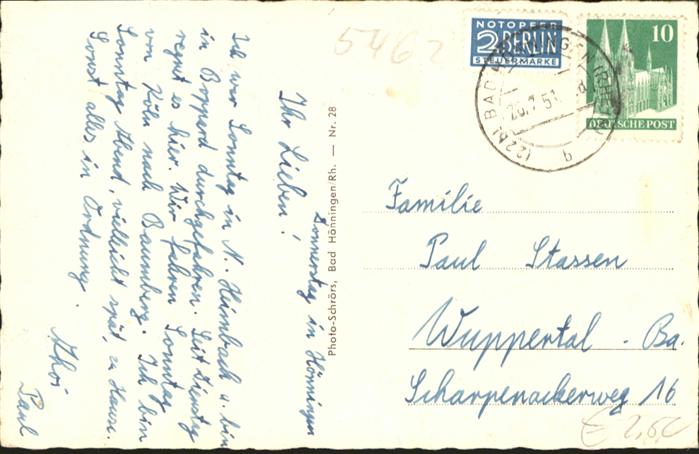 Donnerstag in Hönningen
Ihr Lieben!
Ich war Sonntag in N. Heimbach u. bin
in Boppard durchgefahren. Seit Dienstag
regnet es hier. Wir fahren Sonntag
von Köln nach Baumberg. Ich bin
Sonntag Abend, vielleicht spät, zu Hause.
Sonst alles in Ordnung.
Ahoi
Paul
Photo-Schrörs, Bad Hönningen/Rh. — Nr. 28
5462
NOTOPFER
2 BERLIN
STEUERMARKE
10
DEUTSCHE POST
(22b) BAD HÖNNINGEN (RHEIN)
b
Familie
Paul Stassen
Wuppertal - Ba.
Scharpenackerweg 16
€ 2,50